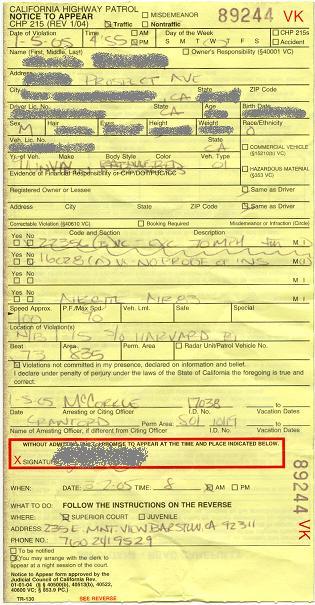 CALIFORNIA HIGHWAY PATROL
NOTICE TO APPEAR
CHP 215 (REV 1/04)
MISDEMEANOR
Traffic Nontraffic
89244 VK
Date of Violation Time AM PM Day of the Week CHP 215s
1-5-05 4:55 S M T W T F S Accident
Name (First, Middle, Last) Owner's Responsibility (§40001 VC)
Address
PROSPECT AVE
City State ZIP Code
CA
Driver Lic. No. State Age Birth Date
CA
Sex Hair Eyes Height Weight Race/Ethnicity
M
Veh. Lic. No. State COMMERCIAL VEHICLE (§15210(b) VC)
CA
Yr. of Veh. Make Body Style Color Veh. Type
RED 01
HAZARDOUS MATERIAL (§353 VC)
Evidence of Financial Responsibility or CHP/DOT/PUC/ICC
Registered Owner or Lessee Same as Driver
Address City State ZIP Code Same as Driver
Correctable Violation (§40610 VC) Booking Required Misdemeanor or Infraction (Circle)
Yes No Code and Section Description
22356(B) VC - EXC 70 MPH M I
Yes No
16028(A) VC NO PROOF OF INS M I
Yes No
M I
Yes No
M I
Speed Approx. P.F./Max Spd. Veh. Lmt. Safe Special
100 70
Location of Violation(s)
N/B I 15 S/O HARVARD
Beat Area Perm. Area Radar Unit/Patrol Vehicle No.
73 835
Violations not committed in my presence, declared on information and belief.
I declare under penalty of perjury under the laws of the State of California the foregoing is true and correct.
1-5-05 17038
Date Arresting or Citing Officer I.D. No. Vacation Dates
Perm.
Name of Arresting Officer, if different from Citing Officer I.D. No. Vacation Dates
WITHOUT ADMITTING GUILT, I PROMISE TO APPEAR AT THE TIME AND PLACE INDICATED BELOW.
X SIGNATURE
WHEN: DATE: 3-2-05 TIME: 8 AM PM
WHAT TO DO: FOLLOW THE INSTRUCTIONS ON THE REVERSE
WHERE: SUPERIOR COURT JUVENILE
ADDRESS: 235 E. MNT. VIEW BARSTOW, CA 92311
PHONE NO.: 760 2419529
To be notified
You may arrange with the clerk to appear at a night session of the court.
Notice to Appear form approved by the
Judicial Council of California Rev.
01-01-04 (§ § 40500(b), 40513(b), 40522,
40600 VC; § 853.9 PC.)
TR-130 SEE REVERSE
89244 VK